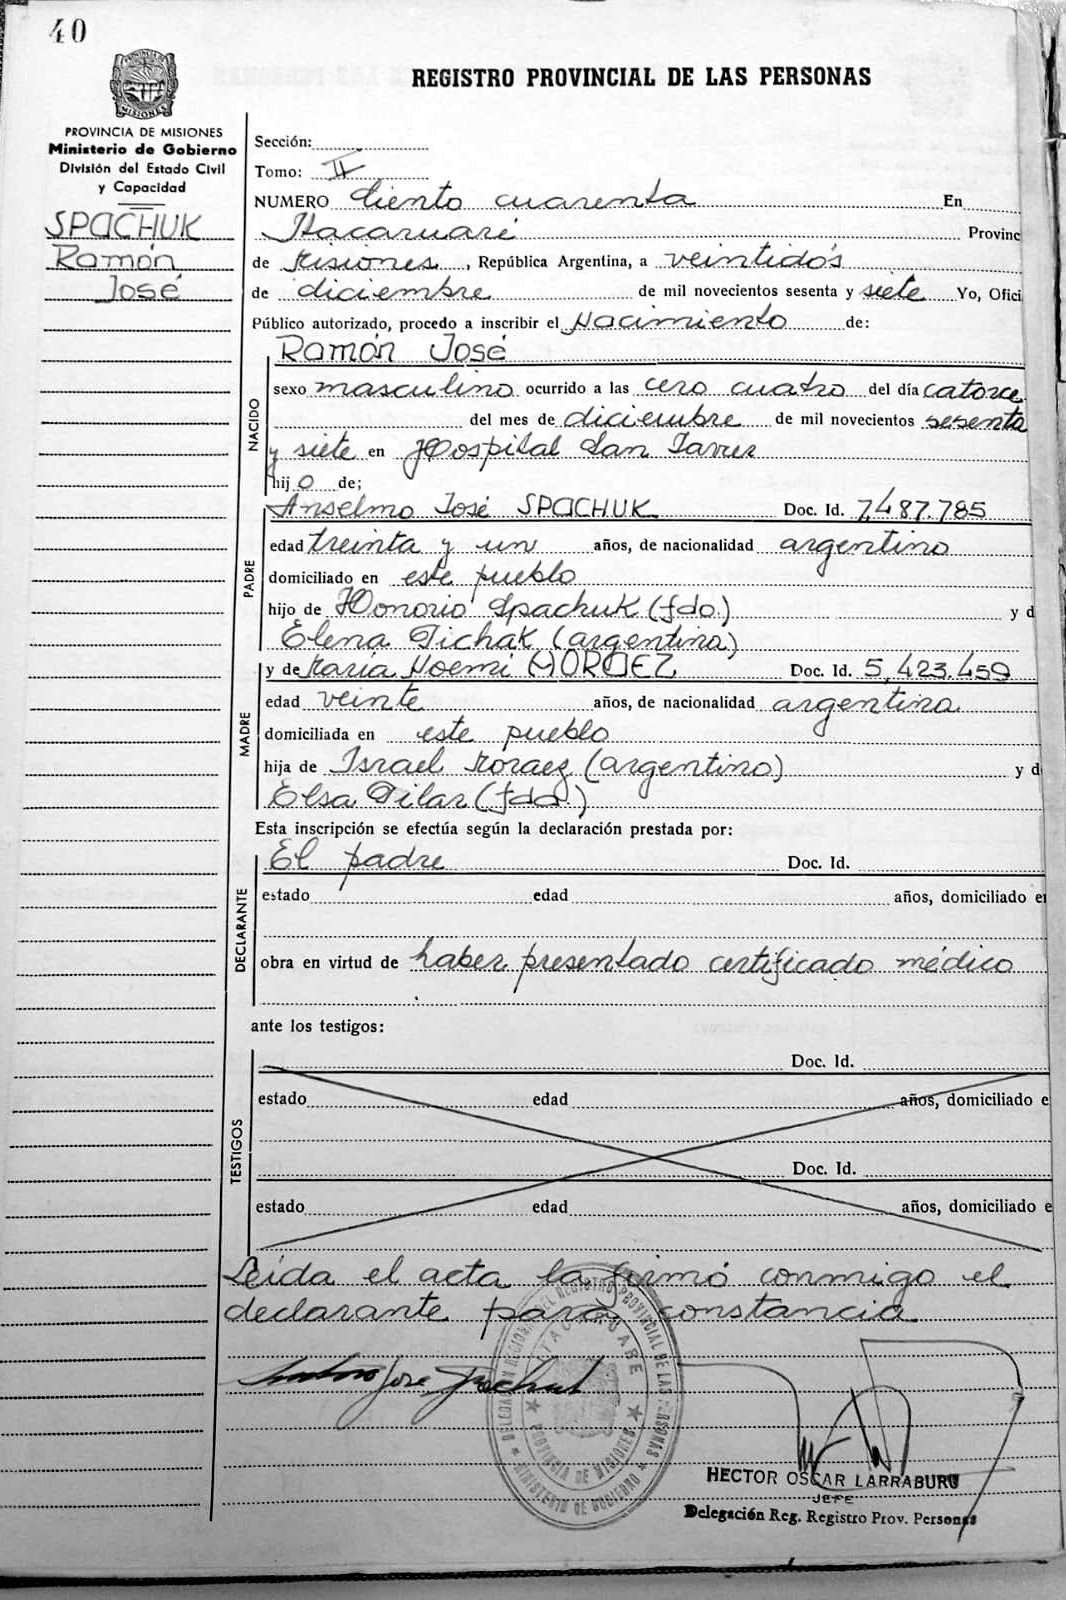 40
PROVINCIA DE MISIONES
REGISTRO PROVINCIAL DE LAS PERSONAS
PROVINCIA DE MISIONES
Ministerio de Gobierno
División del Estado Civil
y Capacidad
SPACHUK
Ramón
José
Sección:
Tomo: II
NUMERO Ciento cuarenta En
Itacaruaré Provinc
de Misiones, República Argentina, a veintidós
de diciembre de mil novecientos sesenta y siete Yo, Ofici
Público autorizado, procedo a inscribir el Nacimiento de:
NACIDO
Ramón José
sexo masculino ocurrido a las cero cuatro del día catorce
del mes de diciembre de mil novecientos sesenta
y siete en Hospital San Javier
hijo de;
PADRE
Anselmo José SPACHUK Doc. Id. 7,487.785
edad treinta y un años, de nacionalidad argentino
domiciliado en este pueblo
hijo de Honorio Spachuk (fdo.) y d
Elena Pichak (argentina)
MADRE
y de María Noemí MORAEZ Doc. Id. 5,423.459
edad veinte años, de nacionalidad argentina
domiciliada en este pueblo
hija de Israel Moraez (argentino) y d
Elsa Pilar (fda.)
Esta inscripción se efectúa según la declaración prestada por:
DECLARANTE
El padre Doc. Id.
estado edad años, domiciliado e
obra en virtud de haber presentado certificado médico
ante los testigos:
TESTIGOS
Doc. Id.
estado edad años, domiciliado e
Doc. Id.
estado edad años, domiciliado e
Leída el acta la firmó conmigo el
declarante para constancia.
José Spachuk
DELEGACION REGIONAL DEL REGISTRO PROVINCIAL DE LAS PERSONAS
ITACARUARE
PROVINCIA DE MISIONES
MINISTERIO DE GOBIERNO
HECTOR OSCAR LARRABURU
JEFE
Delegación Reg. Registro Prov. Personas